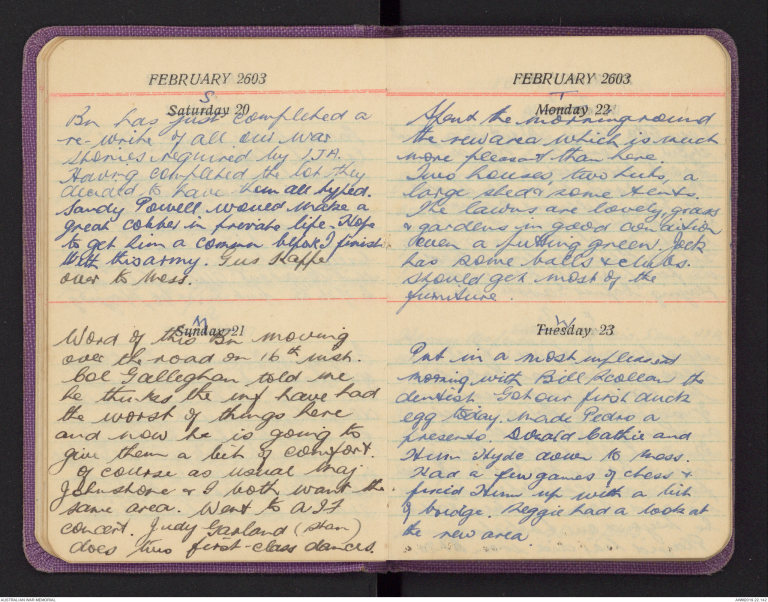 FEBRUARY 2603
S
Saturday 20
Bn has just completed a
re-write of all our war
stories required by IJA.
Having completed the lot they
decided to have them all typed.
Sandy Powell would make a
great cobber in private life. Hope
to get him a common before I finish
with this army. Gus Kappe
over to mess.
M
Sunday 21
Word of this Bn moving
over the road on 16th inst.
Col Galleghan told me
he thinks the inf have had
the worst of things here
and now he is going to
give them a bit of comfort.
Of course as usual Maj
Johnstone & I both want the
same area. Went to AIF
concert. Judy Garland (Stan)
does two first-class dances.
FEBRUARY 2603
T
Monday 22
Spent the morning round
the new area which is much
more pleasant than here.
Two houses, two huts, a
large shed & some tents.
The lawns are lovely, grass
& gardens in good condition
& even a putting green. Jack
has some balls & clubs.
should get most of the
furniture.
W
Tuesday 23
Put in a most unpleasant
morning with Bill Scollan the
dentist. Got our first duck
egg today. Made Pedro a
presento. Donald Cathie and
Hum Hyde down to mess.
Had a few games of chess &
fixed Hum up with a bit
of bridge. Reggie had a look at
the new area.
AUSTRALIAN WAR MEMORIAL